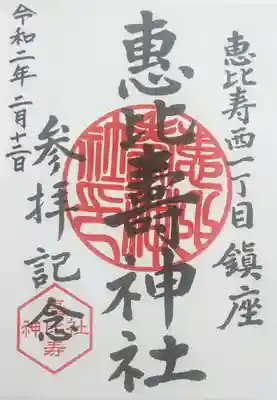 恵比寿西一丁目鎮座
恵比壽神社
参拝記念
令和二年二月十二日
恵比寿
神社